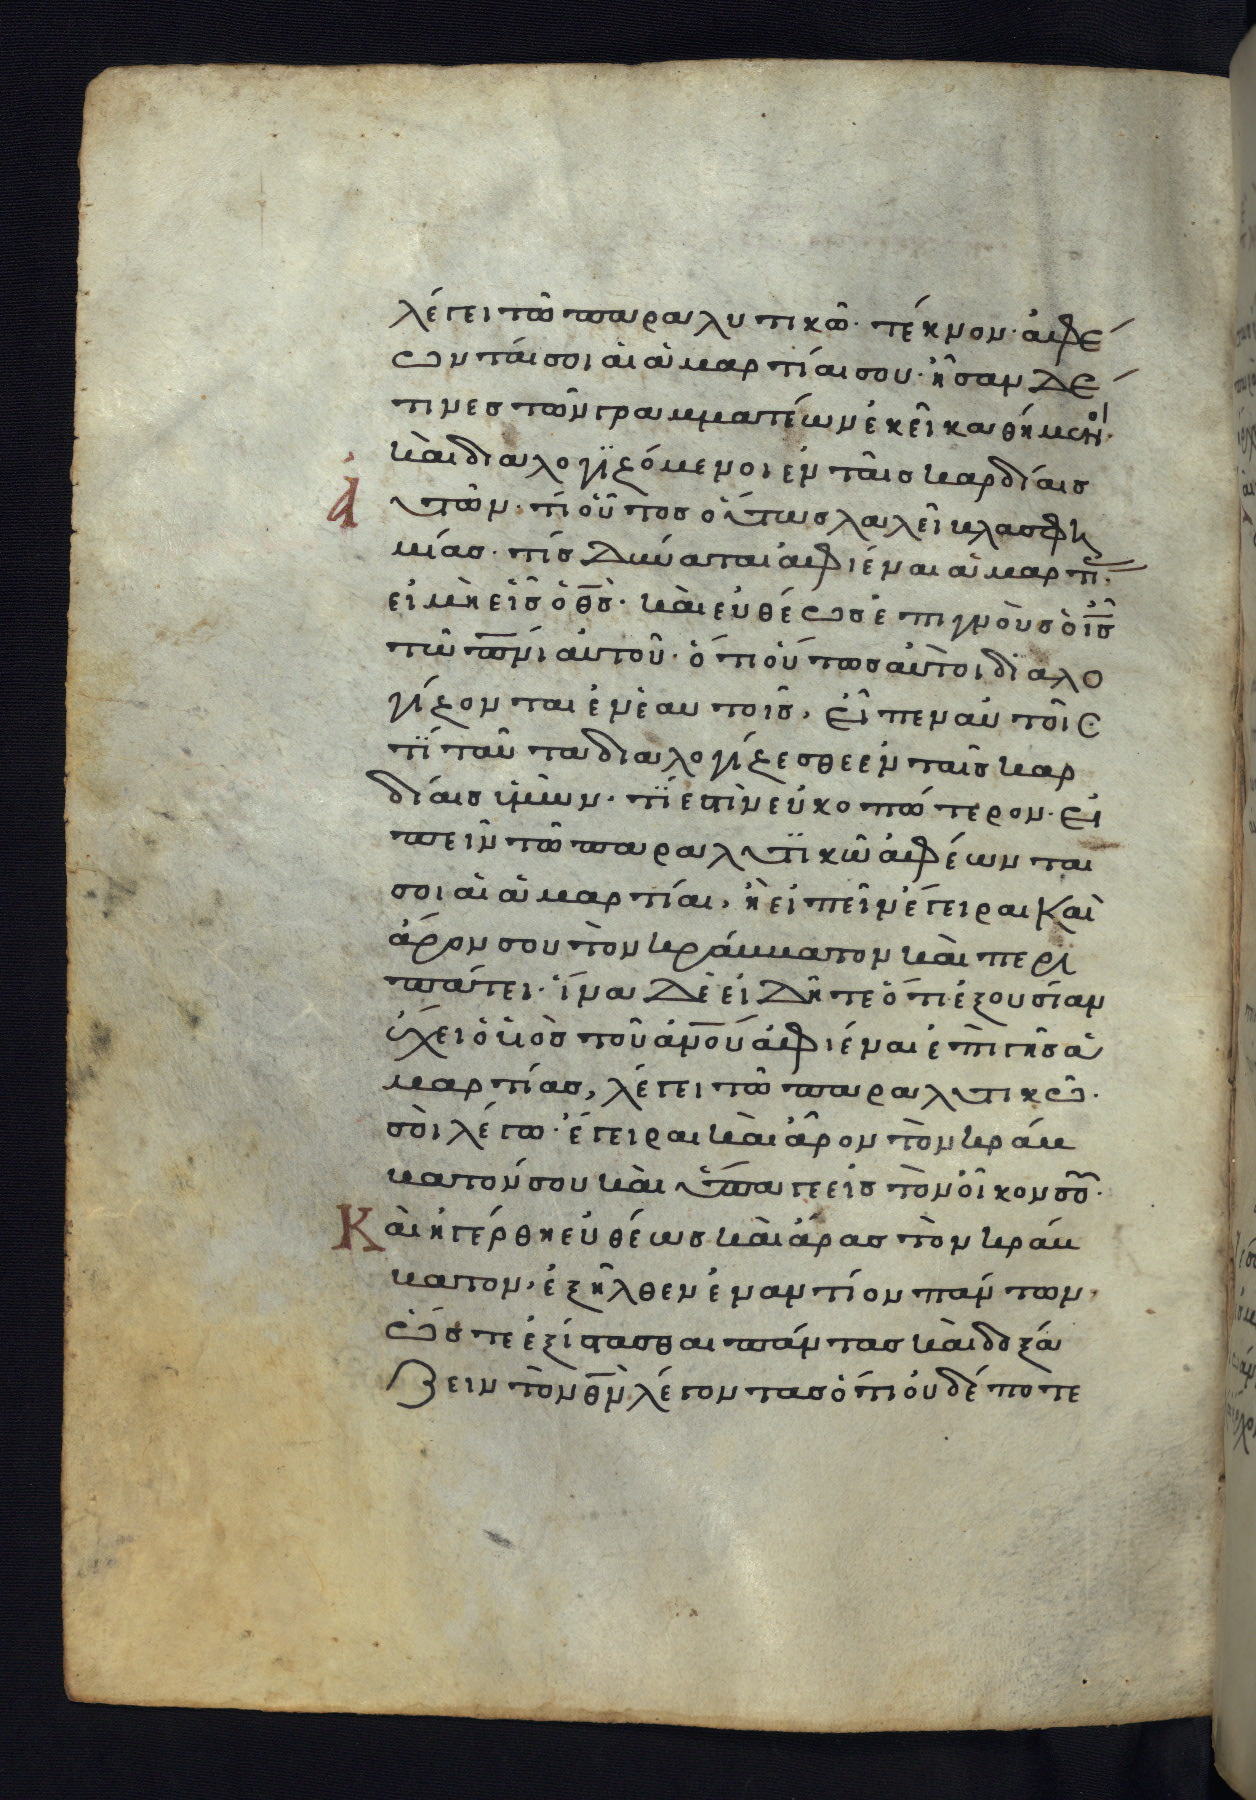 λέγει τῶ παραλυτικῶ· τέκνον· ἀφέ
ωνταί σοι αἱ ἁμαρτίαι σου· ἦσαν δέ
τινες τῶν γραμματέων ἐκεῖ καθήμενοι·
καὶ διαλογϊζόμενοι ἐν ταῖς καρδίαις
ἀυτῶν· τί οὗτος οὕτως λαλεῖ βλασφη
μίας· τίς δύναται ἀφιέναι ἁμαρτί·
εἰ μὴ εἷς ὁ θ̅ς̅· καὶ εὐθέως ἐπιγνοὺς ὁ ι̅ς̅
τῶ π̅ν̅ι αὐτοῦ· ὅτι οὕτως αὐτοὶ διαλο
γίζονται ἐν ἑαυτοῖς, εἶπεν αὐτοῖς
τϊ ταῦτα διαλογίζεσθε ἐν ταῖς καρ
δίαις ὑμῶν· τϊ ἐστὶν εὐκοπώτερον· εἰ
πεῖν τῶ παραλυτϊκῶ ἀφέωνται
σοι αἱ ἁμαρτίαι, ἢ εἰπεῖν ἔγειραι καὶ
ἆρον σου τὸν κράββατον καὶ περι
πάτει· ἵνα δὲ εἰδῆτε ὅτι ἐξουσίαν
ἔχει ὁ υἱὸς τοῦ α̅ν̅ο̅υ̅ ἀφιέναι ἐπὶ γῆς ἁ
μαρτίας, λέγει τῶ παραλυτικῶ·
σὸι λέγω· ἔγειραι καὶ ἆρον τὸν κράβ
βατόν σου καὶ ὕπαγε εἰς τὸν οἶκον σου·
Καὶ ἠγέρθη εὐθέως καὶ ἄρας τὸν κράβ
βατον, ἐξῆλθεν ἐναντίον πάντων,
ὥστε ἐξίστασθαι πάντας καὶ δοξά
ζειν τὸν θ̅ν̅ λέγοντας ὅτι οὐδέποτε